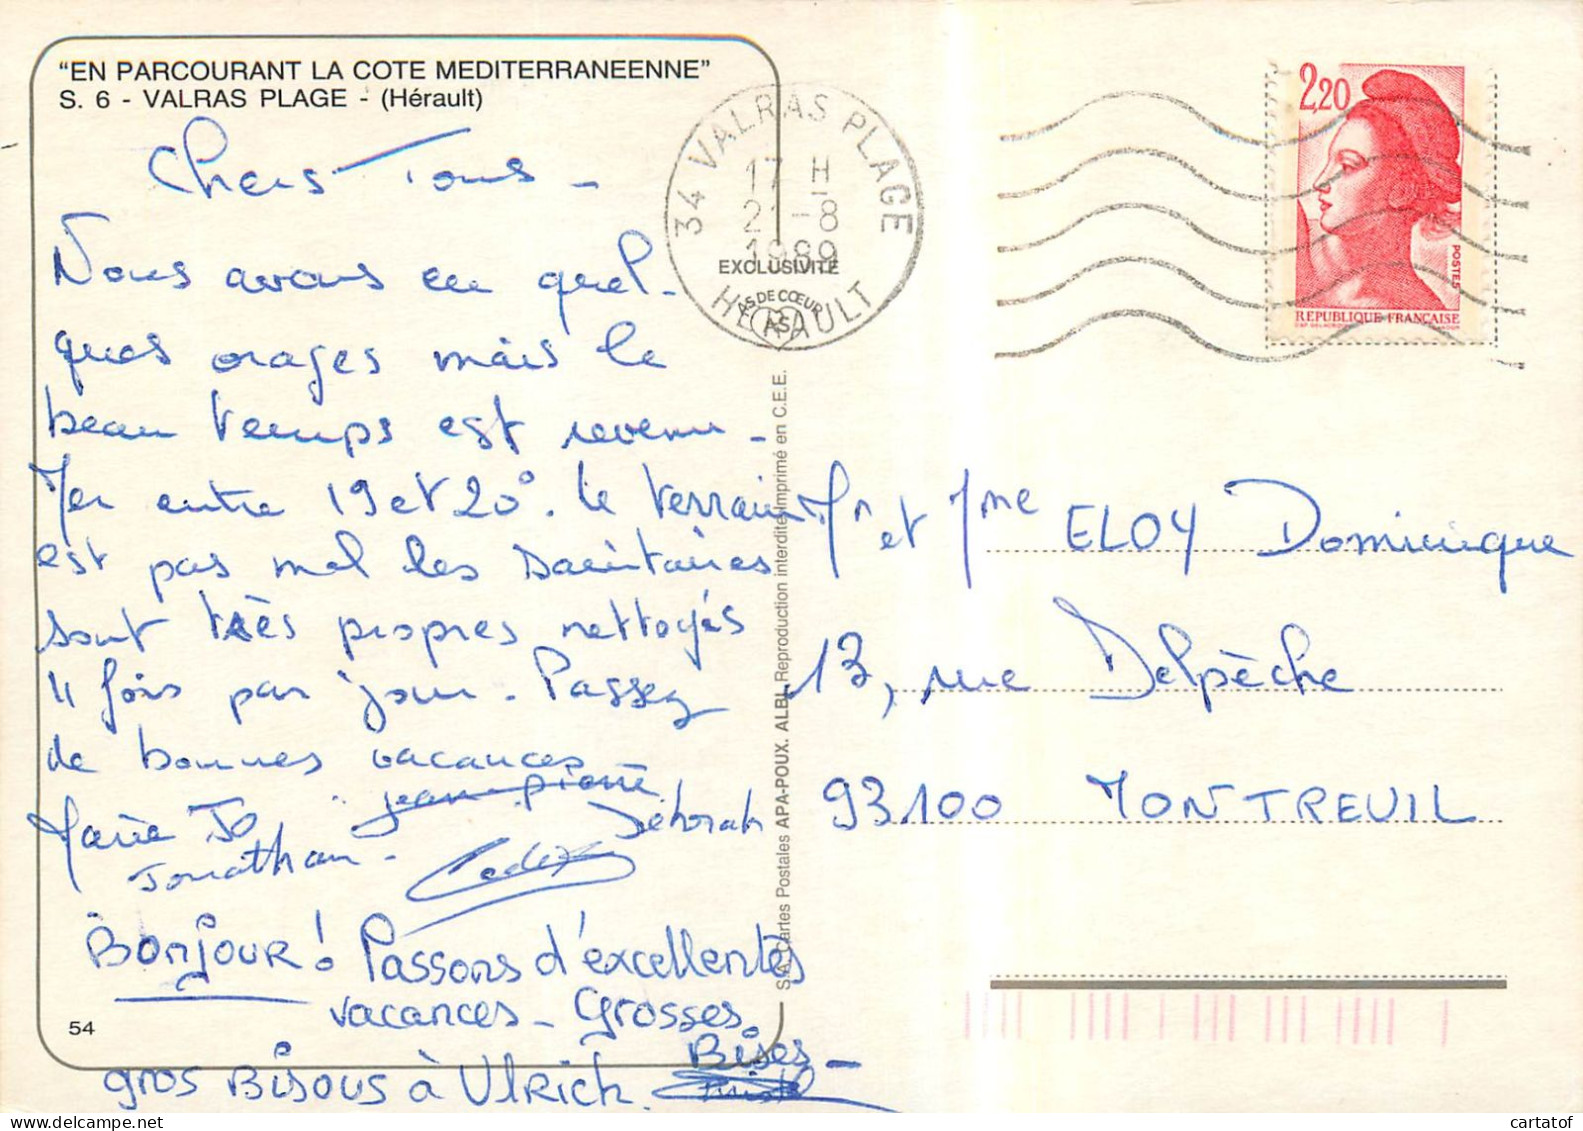 "EN PARCOURANT LA COTE MEDITERRANEENNE"
S. 6 - VALRAS PLAGE - (Hérault)
Chers Tous -
Nous avons eu quel-
ques orages mais le
beau temps est revenu -
Mer entre 19 et 20°. Le terrain
est pas mal les sanitaires
sont très propres nettoyés
4 fois par jour - Passez
de bonnes vacances
Marie Jo. jean-pierre Déborah
Jonathan -
Bonjour! Passons d'excellentes
vacances - Grosses
Bises -
gros Bisous à Ulrich.
54
34 VALRAS PLAGE
17 H
21 - 8
1989
HERAULT
EXCLUSIVITE
AS DE CŒUR
AS
S.A. Cartes Postales APA-POUX. ALBI. Reproduction interdite. Imprimé en C.E.E.
2,20
POSTES
REPUBLIQUE FRANÇAISE
Mr et Mme ELOY Dominique
13, rue Delpèche
93100 MONTREUIL
cartatof.com